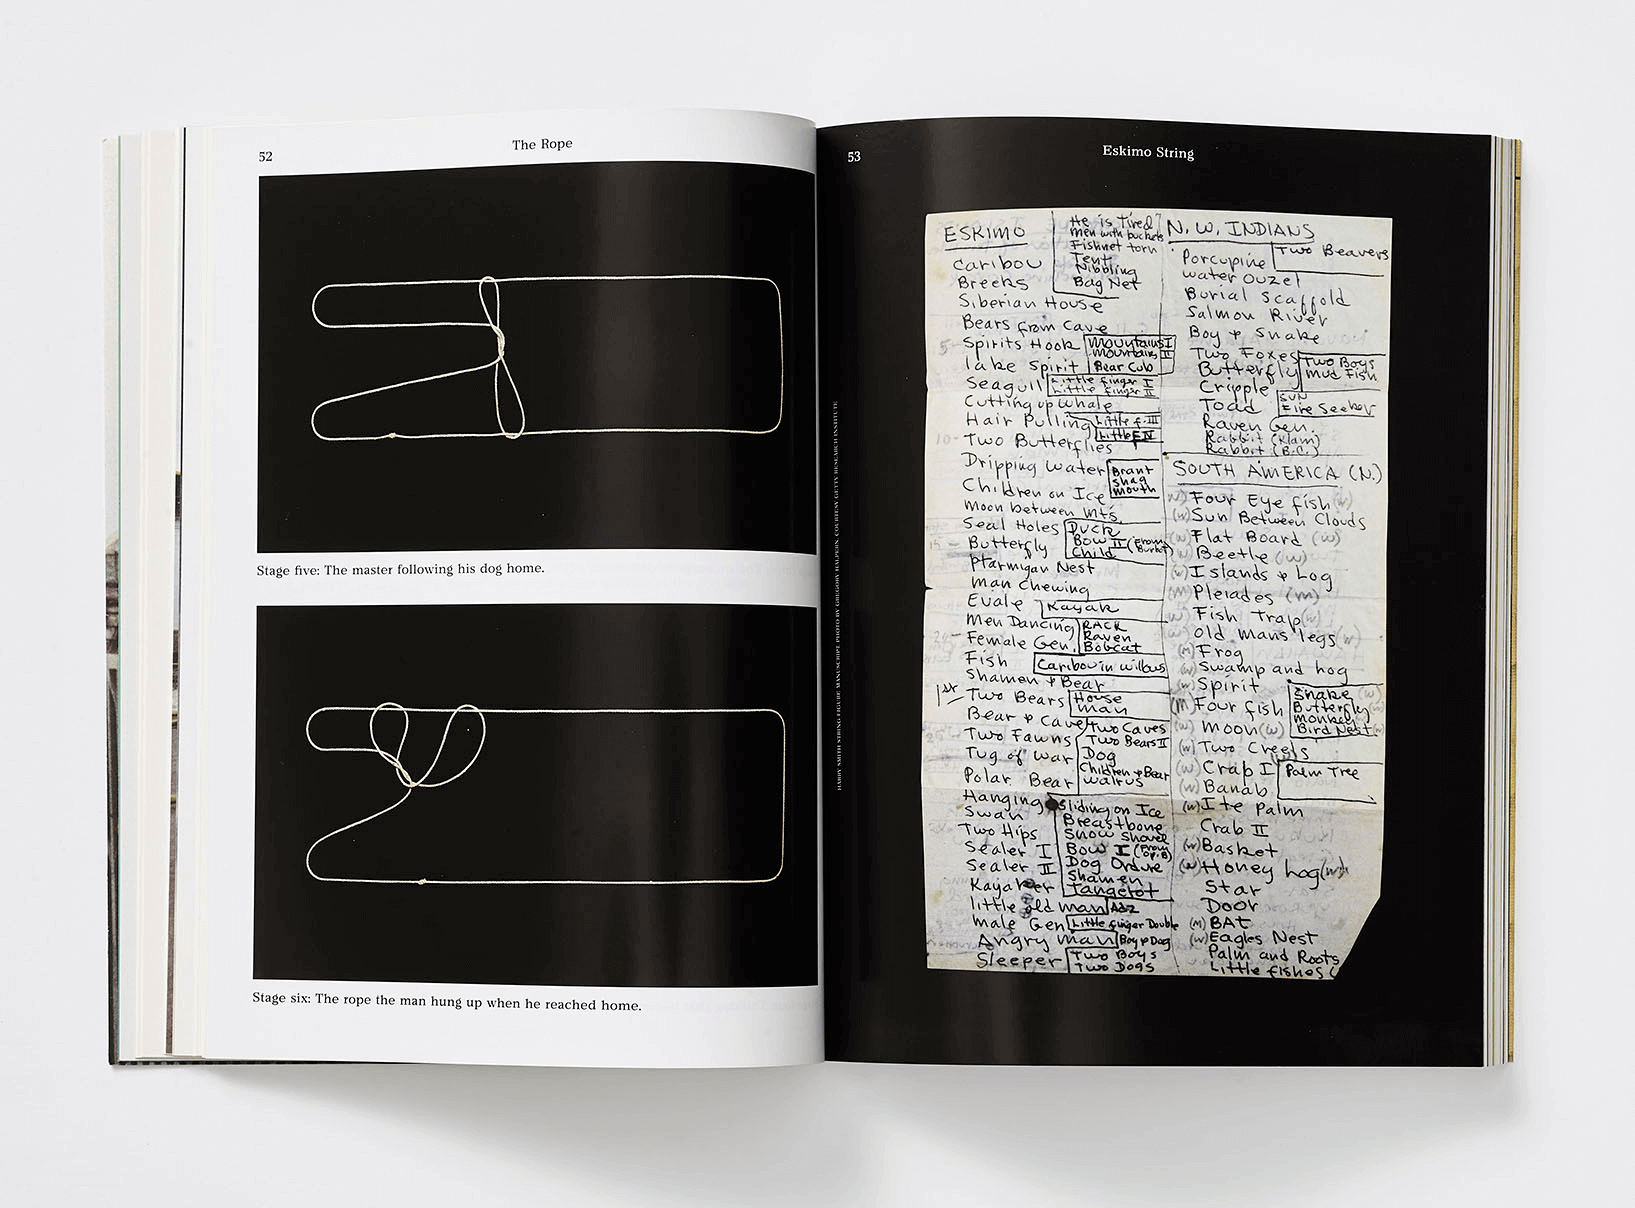 52
The Rope
Stage five: The master following his dog home.
Stage six: The rope the man hung up when he reached home.
53
Eskimo String
HARRY SMITH STRING FIGURE MANUSCRIPT. PHOTO BY GREGORY HALPERN, COURTESY GETTY RESEARCH INSTITUTE
ESKIMO
He is tired
men with buckets
Fishnet torn
Tent
Nibbling
Bag Net
Caribou
Breeks
Siberian House
Bears from Cave
Spirits Hook
Mountains I
Mountains II
Bear Cub
lake Spirit
Seagull
Little finger I
Little finger II
Cutting up whale
Hair Pulling
Little f. III
Two Butterflies
Dripping Water
Brant
Shag
mouth
Children on Ice
Moon between Mts.
Seal Holes
Duck
Bow II (From
Child
Butterfly
Ptarmigan Nest
Man Chewing
Kayak
Men Dancing
RACK
Raven
Bobcat
Female Gen.
Fish
Caribou in willows
Shamen + Bear
1st
Two Bears
House
man
Bear + Cave
Two Caves
Two Bears II
Two Fawns
Tug of War
Dog
Children + Bear
walrus
Polar Bear
Hanging
Sliding on Ice
Breastbone
Snow Shovel
Bow I (From
Dog Ordure
Shamen
Swan
Two Hips
Sealer I
Sealer II
Kayaker
little old man
Adz
Male Gen
Little finger Double
Angry man
Boy + Dog
Sleeper
Two Boys
Two Dogs
N. W. INDIANS
Two Beavers
Porcupine
water Ouzel
Burial Scaffold
Salmon River
Boy + Snake
Two Foxes
Two Boys
Mud Fish
Butterfly
Cripple
SUN
Fire Seeker
Toad
Raven Gen.
Rabbit (Klam)
Rabbit (B.C.)
SOUTH AMERICA (N.)
(W) Four Eye fish (W)
(W) Sun Between Clouds
(W) Flat Board (W)
(W) Beetle (W)
(W) Islands + Log
(M) Pleiades (M)
(W) Fish Trap (W)
(W) Old mans legs (W)
(M) Frog
(W) Swamp and hog
(W) Spirit
Snake (W)
Butterfly
monkey
Bird Nest
(M) Four fish
(W) Moon (W)
(W) Two Creeks
(W) Crab I
Palm Tree
(W) Banab
(W) Ite Palm
Crab II
(W) Basket
(W) Honey hog (W)
Star
Door
(M) BAT
(W) Eagles Nest
Palm and Roots
Little fishes